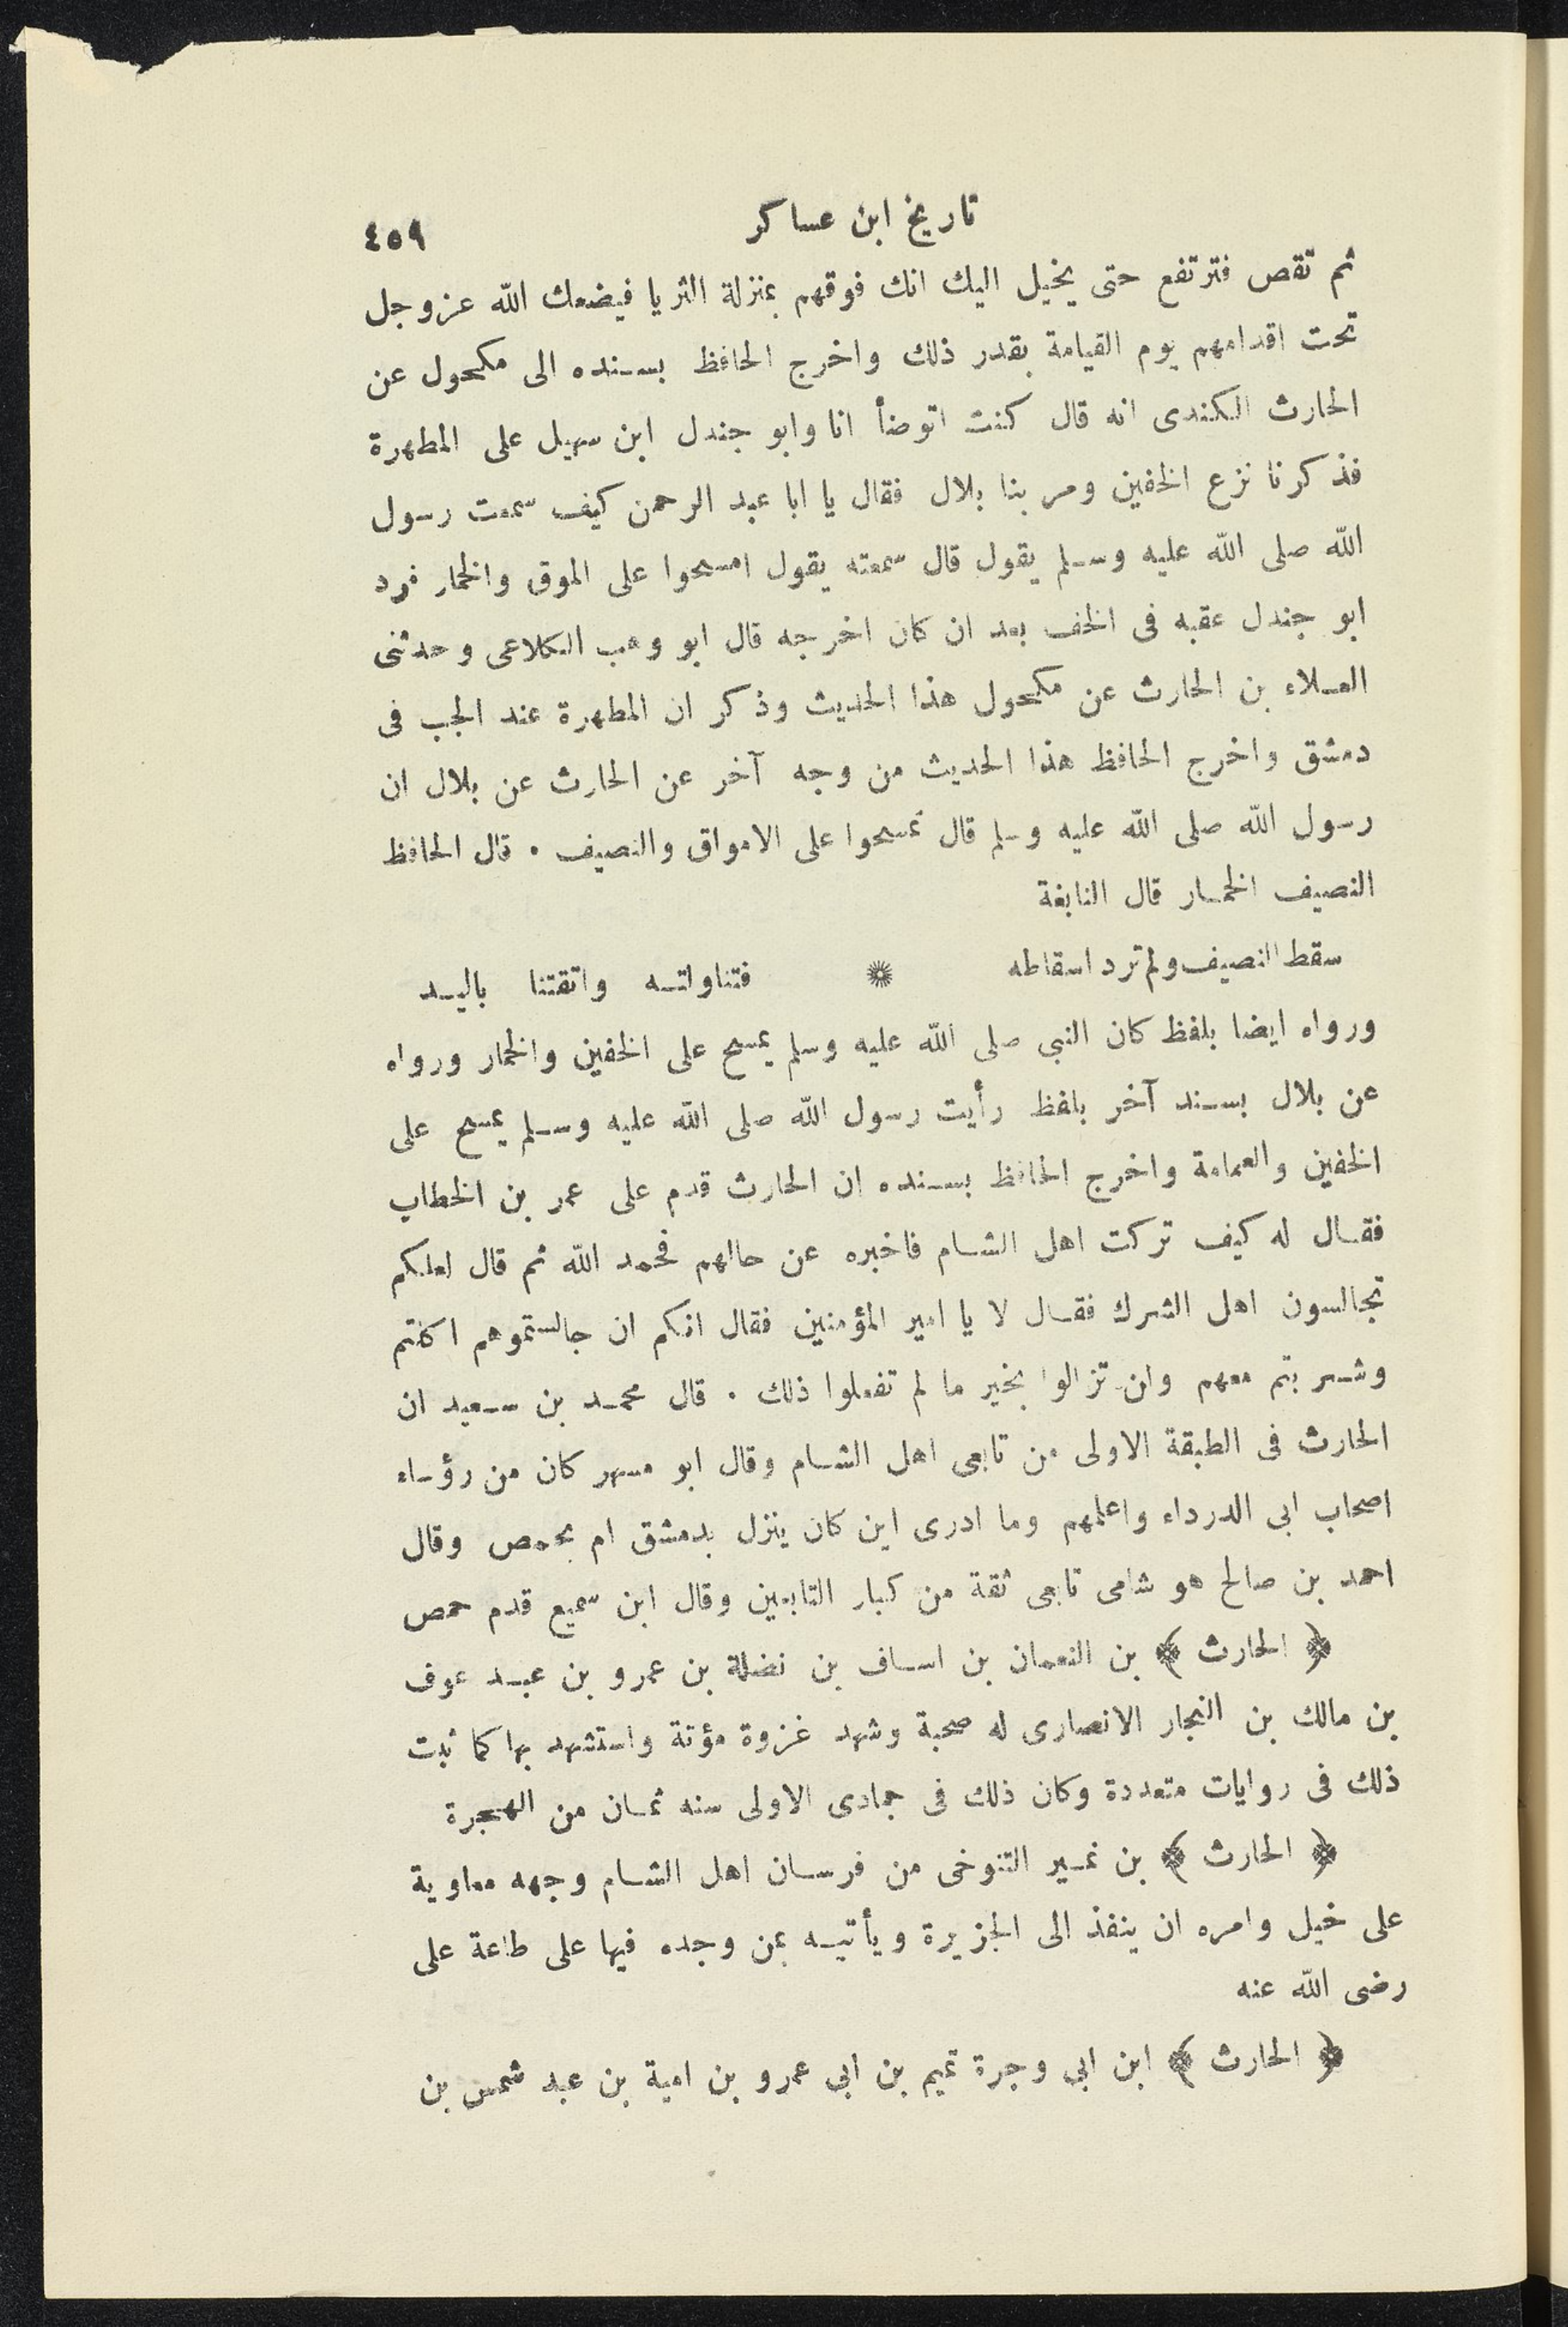 تاريخ ابن عساكر ٤٥٩
ثم تقص فترتفع حتى يخيل اليك انك فوقهم بمنزلة الثريا فيضعك الله عز وجل
تحت اقدامهم يوم القيامة بقدر ذلك واخرج الحافظ بسنده الى مكحول عن
الحارث الكندى انه قال كنت اتوضأ انا وابو جندل ابن سهيل على المطهرة
فذكرنا نزع الخفين ومر بنا بلال فقال يا ابا عبد الرحمن كيف سمعت رسول
الله صلى الله عليه وسلم يقول قال سمعته يقول امسحوا على الموق والخمار فرد
ابو جندل عقبه فى الخف بعد ان كان اخرجه قال ابو وهب الكلاعى وحدثنى
العلاء بن الحارث عن مكحول هذا الحديث وذكر ان المطهرة عند الجب فى
دمشق واخرج الحافظ هذا الحديث من وجه آخر عن الحارث عن بلال ان
رسول الله صلى الله عليه وسلم قال تمسحوا على الامواق والنصيف . قال الحافظ
النصيف الخمار قال النابغة
سقط النصيف ولم ترد اسقاطه * فتناولته واتقتنا باليد
ورواه ايضا بلفظ كان النبى صلى الله عليه وسلم يمسح على الخفين والخمار ورواه
عن بلال بسند آخر بلفظ رأيت رسول الله صلى الله عليه وسلم يمسح على
الخفين والعمامة واخرج الحافظ بسنده ان الحارث قدم على عمر بن الخطاب
فقال له كيف تركت اهل الشام فاخبره عن حالهم فحمد الله ثم قال لعلكم
تجالسون اهل الشرك فقال لا يا امير المؤمنين فقال انكم ان جالستموهم اكلتم
وشربتم معهم ولن تزالوا بخير ما لم تفعلوا ذلك . قال محمد بن سعيد ان
الحارث فى الطبقة الاولى من تابعى اهل الشام وقال ابو مسهر كان من رؤساء
اصحاب ابى الدرداء واعلمهم وما ادرى اين كان ينزل بدمشق ام بحمص وقال
احمد بن صالح هو شامى تابعى ثقة من كبار التابعين وقال ابن سميع قدم حمص
﴿ الحارث ﴾ بن النعمان بن اساف بن نضلة بن عمرو بن عبد عوف
بن مالك بن النجار الانصارى له صحبة وشهد غزوة مؤتة واستشهد بها كما ثبت
ذلك فى روايات متعددة وكان ذلك فى جمادى الاولى سنه ثمان من الهجرة
﴿ الحارث ﴾ بن نمير التنوخى من فرسان اهل الشام وجهه معاوية
على خيل وامره ان ينفذ الى الجزيرة ويأتيه بمن وجده فيها على طاعة على
رضى الله عنه
﴿ الحارث ﴾ ابن ابى وجرة تميم بن ابى عمرو بن امية بن عبد شمس بن